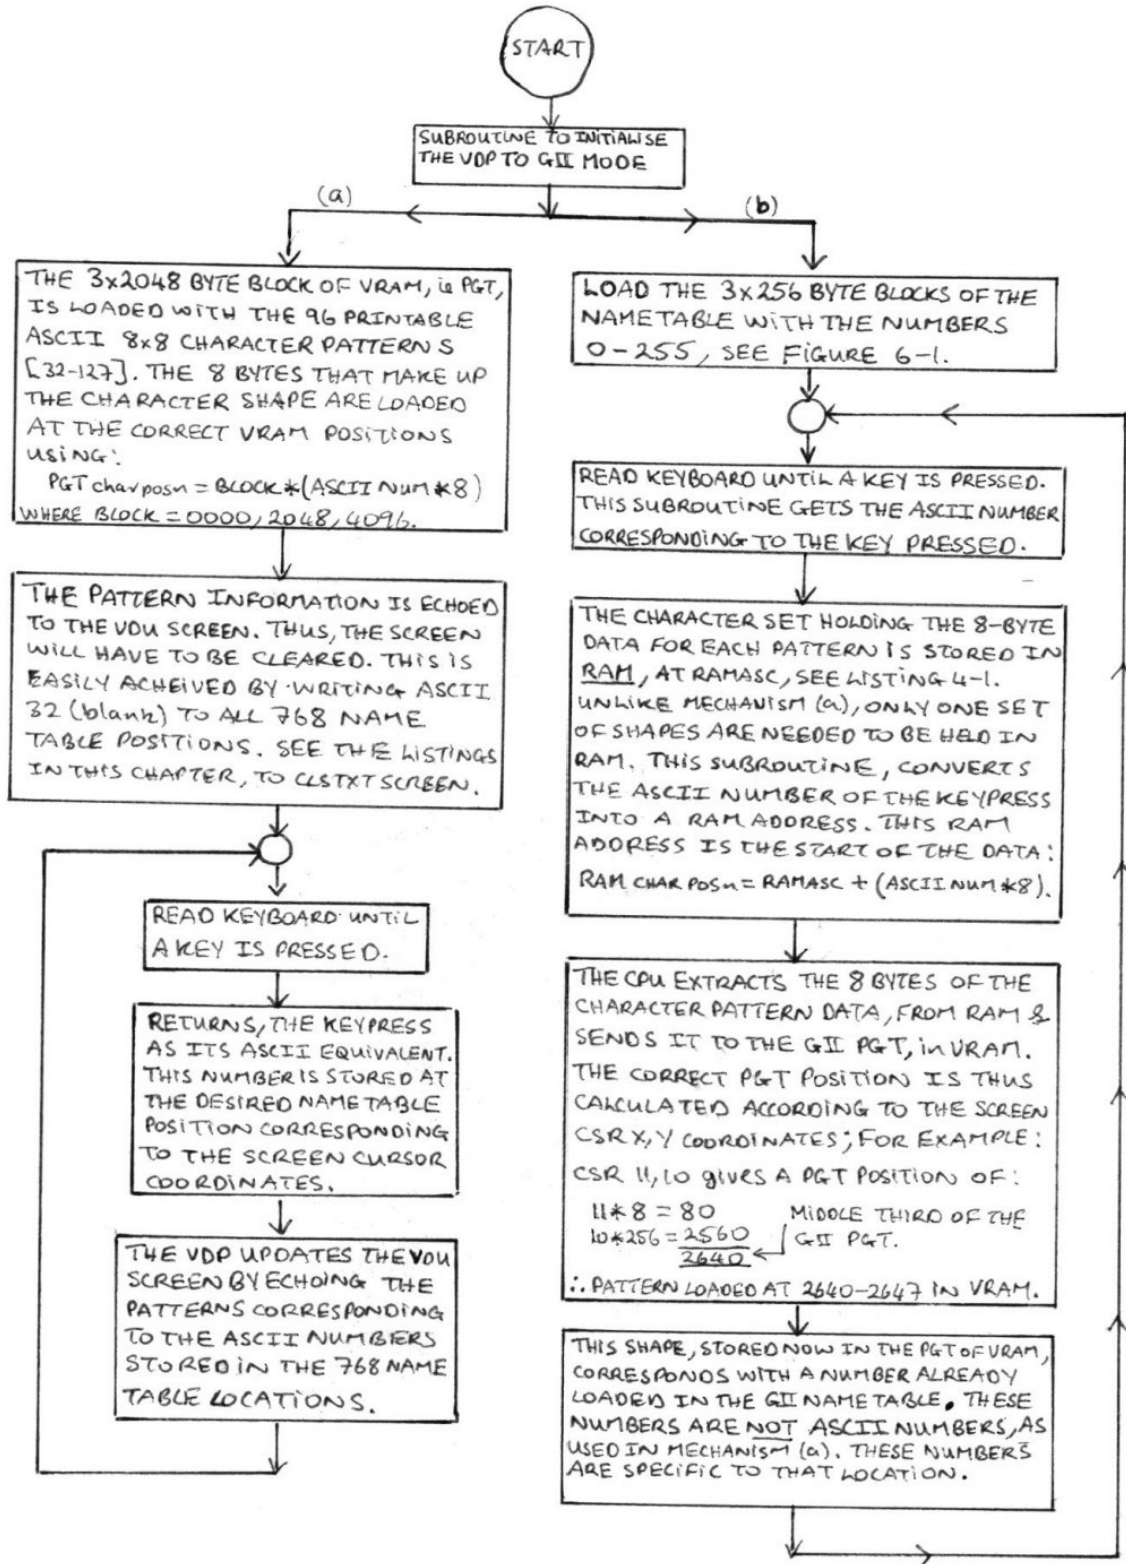 START
SUBROUTINE TO INITIALISE
THE VDP TO GII MODE
(a)
(b)
THE 3x2048 BYTE BLOCK OF VRAM, ie PGT,
IS LOADED WITH THE 96 PRINTABLE
ASCII 8x8 CHARACTER PATTERNS
[32-127]. THE 8 BYTES THAT MAKE UP
THE CHARACTER SHAPE ARE LOADED
AT THE CORRECT VRAM POSITIONS
USING:
PGT char posn = BLOCK*(ASCII NUM*8)
WHERE BLOCK = 0000, 2048, 4096.
THE PATTERN INFORMATION IS ECHOED
TO THE VDU SCREEN. THUS, THE SCREEN
WILL HAVE TO BE CLEARED. THIS IS
EASILY ACHEIVED BY WRITING ASCII
32 (blank) TO ALL 768 NAME
TABLE POSITIONS. SEE THE LISTINGS
IN THIS CHAPTER, TO CLSTXT SCREEN.
READ KEYBOARD UNTIL
A KEY IS PRESSED.
RETURNS, THE KEYPRESS
AS ITS ASCII EQUIVALENT.
THIS NUMBER IS STORED AT
THE DESIRED NAME TABLE
POSITION CORRESPONDING
TO THE SCREEN CURSOR
COORDINATES.
THE VDP UPDATES THE VDU
SCREEN BY ECHOING THE
PATTERNS CORRESPONDING
TO THE ASCII NUMBERS
STORED IN THE 768 NAME
TABLE LOCATIONS.
LOAD THE 3x256 BYTE BLOCKS OF THE
NAME TABLE WITH THE NUMBERS
0-255, SEE FIGURE 6-1.
READ KEYBOARD UNTIL A KEY IS PRESSED.
THIS SUBROUTINE GETS THE ASCII NUMBER
CORRESPONDING TO THE KEY PRESSED.
THE CHARACTER SET HOLDING THE 8-BYTE
DATA FOR EACH PATTERN IS STORED IN
RAM, AT RAMASC, SEE LISTING 4-1.
UNLIKE MECHANISM (a), ONLY ONE SET
OF SHAPES ARE NEEDED TO BE HELD IN
RAM. THIS SUBROUTINE, CONVERTS
THE ASCII NUMBER OF THE KEYPRESS
INTO A RAM ADDRESS. THIS RAM
ADDRESS IS THE START OF THE DATA:
RAM CHAR POSn = RAMASC + (ASCII NUM*8).
THE CPU EXTRACTS THE 8 BYTES OF THE
CHARACTER PATTERN DATA, FROM RAM &
SENDS IT TO THE GII PGT, in VRAM.
THE CORRECT PGT POSITION IS THUS
CALCULATED ACCORDING TO THE SCREEN
CSR X,Y COORDINATES; FOR EXAMPLE:
CSR 11,10 gives A PGT POSITION OF:
11*8 = 80
10*256 = 2560
2640
MIDDLE THIRD OF THE
GII PGT.
∴ PATTERN LOADED AT 2640-2647 IN VRAM.
THIS SHAPE, STORED NOW IN THE PGT OF VRAM,
CORRESPONDS WITH A NUMBER ALREADY
LOADED IN THE GII NAME TABLE. THESE
NUMBERS ARE NOT ASCII NUMBERS, AS
USED IN MECHANISM (a). THESE NUMBERS
ARE SPECIFIC TO THAT LOCATION.